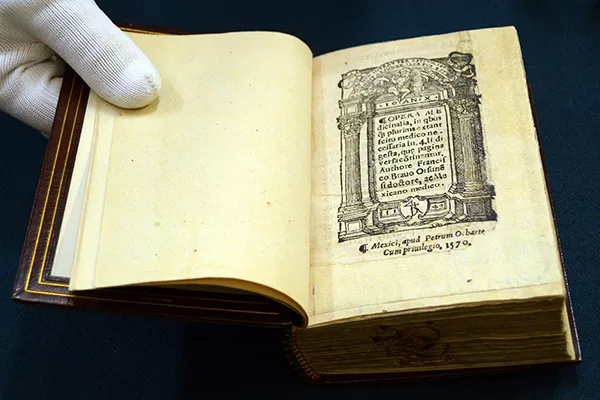 ¶OPERA ME
dicinalia, in q̃bus
q̃ plurima extant
scitu medico ne-
cessaria in. 4. li di
gesta, quę pagina
versa cõtinẽtur,
Authore Francis
co Brauo Osune
si doctore, ac Me
xicano medico.
¶ Mexici, apud Petrum Ocharte
Cum priuilegio, 1570.